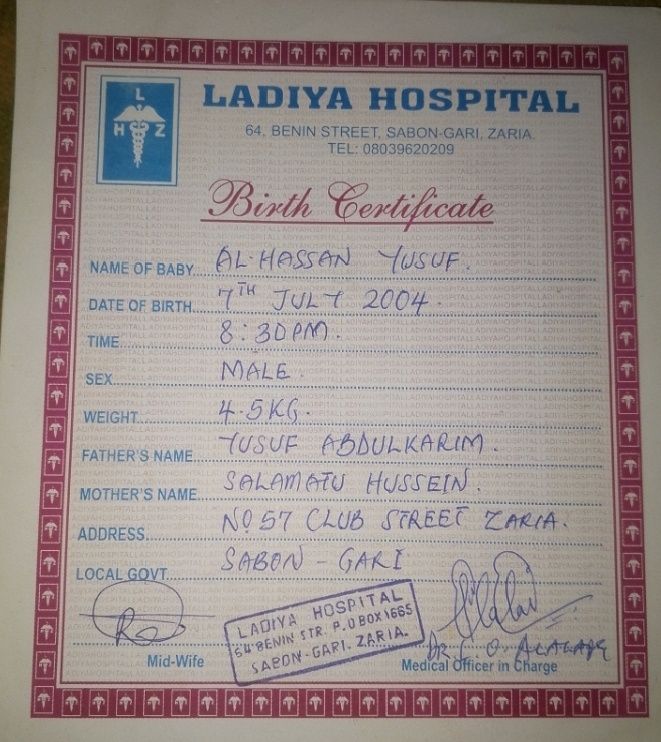 L
H Z
LADIYA HOSPITAL
64, BENIN STREET, SABON-GARI, ZARIA.
TEL: 08039620209
Birth Certificate
NAME OF BABY AL-HASSAN YUSUF.
DATE OF BIRTH 7TH JULY 2004.
TIME 8:30PM.
SEX MALE.
WEIGHT 4.5KG.
FATHER'S NAME YUSUF ABDULKARIM.
MOTHER'S NAME SALAMATU HUSSEIN.
ADDRESS NO 57 CLUB STREET ZARIA.
LOCAL GOVT. SABON-GARI
LADIYA HOSPITAL
64 BENIN STR. P.O BOX 1665
SABON-GARI. ZARIA.
Mid-Wife
Medical Officer in Charge